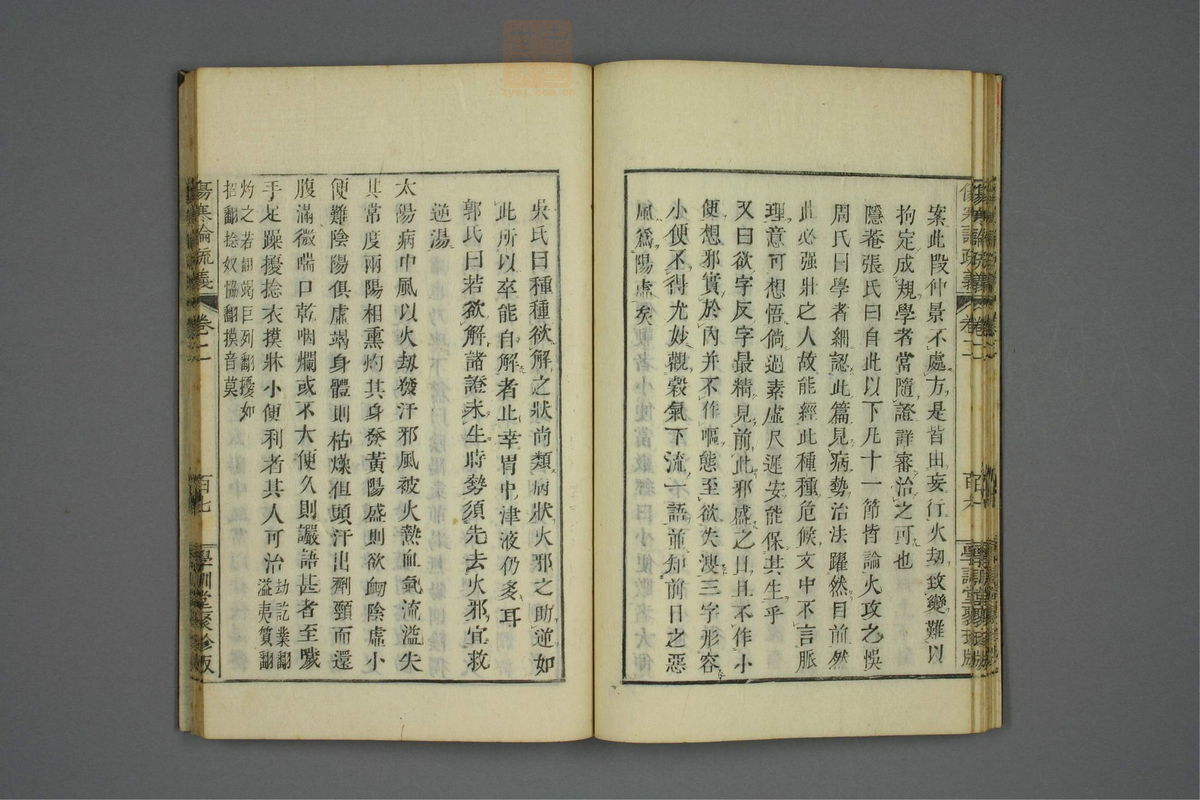 案此段仲景不處方是皆由妄行火刼致變難以
拘定成規學者當隨證詳審治之可也
隱菴張氏曰自此以下凡十一節皆論火攻之悞
周氏曰學者細認此篇見病勢治法躍然目前然
此必强壯之人故能經此種種危候文中不言脈
理意可想悟倘過素虛尺遲安能保其生乎
又曰欲字反字最精見前此邪盛之日且不作小
便想邪實於內并不作嘔態至欲失溲三字形容
小便不得尤妙觀穀氣下流一語並知前日之惡
風爲陽虛矣
傷寒論疏義
卷二
百六
學訓堂聚珍版
吳氏曰種種欲解之狀尚類病狀火邪之助逆如
此所以卒能自解者止幸胃中津液仍多耳
郭氏曰若欲解諸證未生時勢須先去火邪宜救
逆湯
太陽病中風以火刼發汗邪風被火熱血氣流溢失
其常度兩陽相熏灼其身發黃陽盛則欲衂陰虛小
便難陰陽俱虛竭身體則枯燥但頭汗出劑頸而還
腹滿微喘口乾咽爛或不大便久則讝語甚者至噦
手足躁擾捻衣摸牀小便利者其人可治刼訖業翻溢夷質翻
灼之若翻竭巨列翻擾如
招翻捻奴恊翻摸音莫
傷寒論疏義
卷二
百七
學訓堂聚珍版